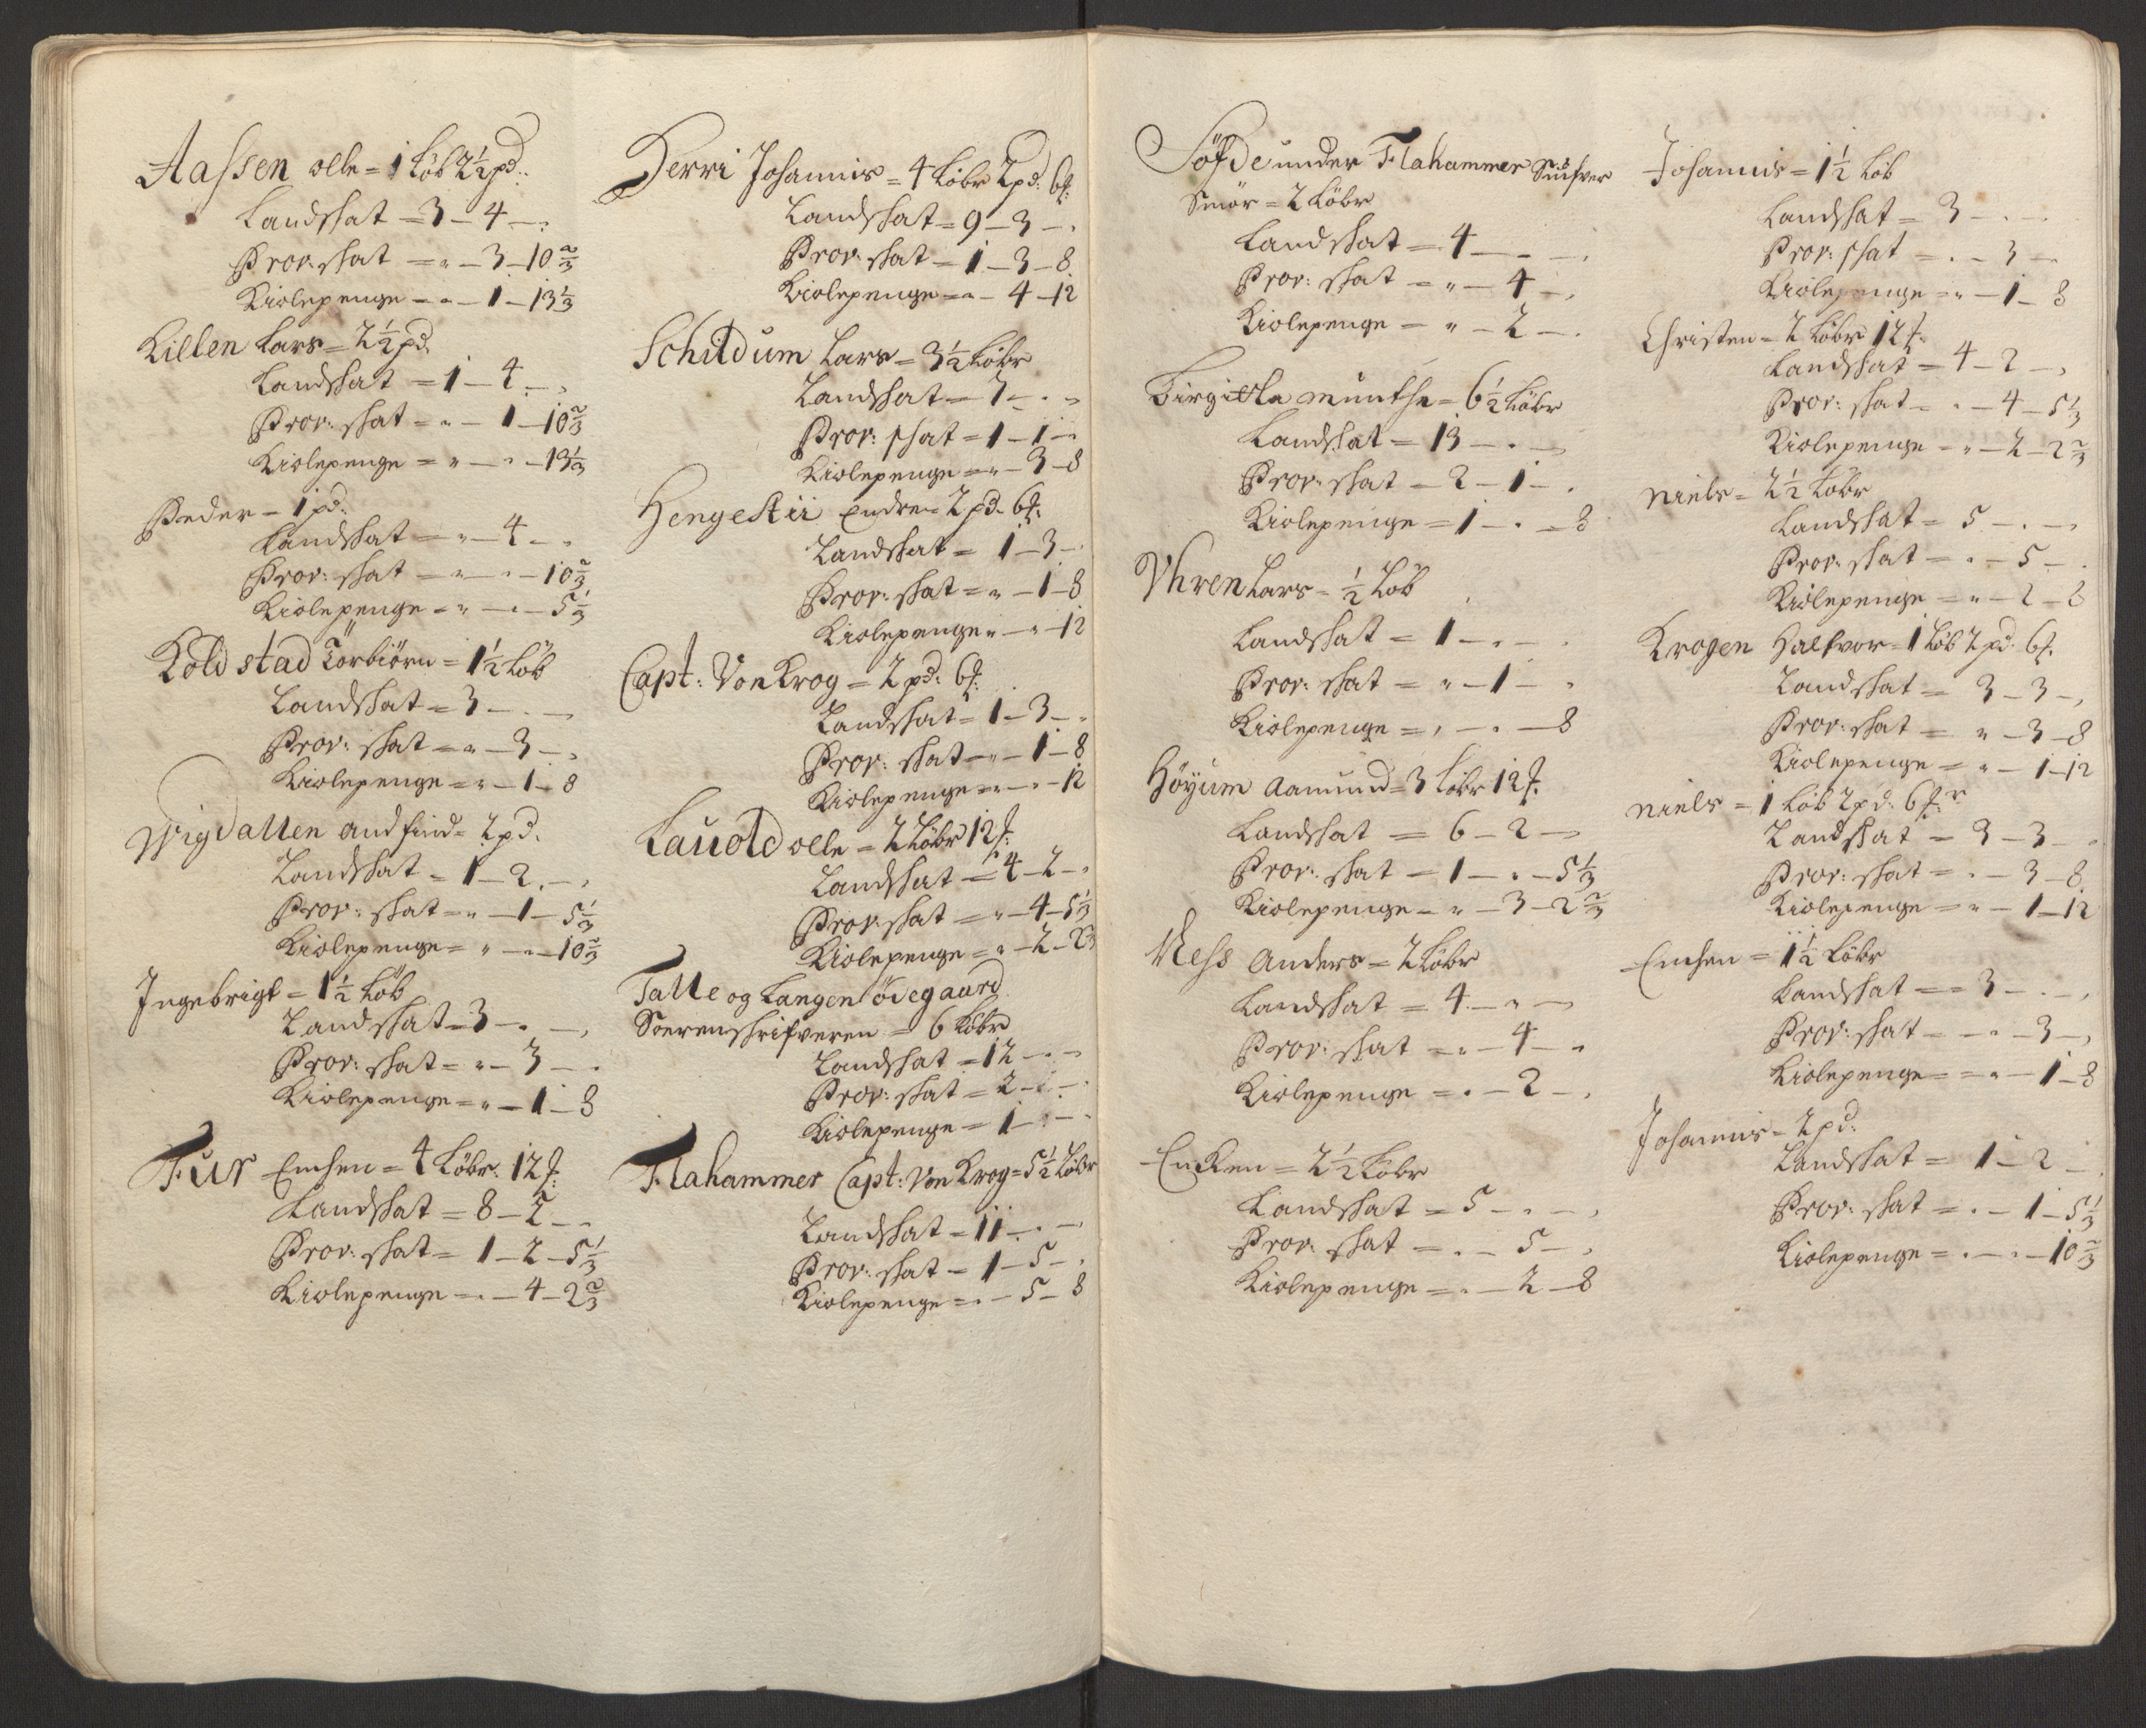 Aassen olle = 1 Löb 2½ pd:
Landskat = 3 - 4 - .
Prov: skat = „ - 3 - 10 2/3
Kiolepenge - „ - 1 - 13 1/3
Killen Lars = 2½ pd.
Landskat = 1 - 4 - .
Prov: skat = „ - 1 - 10 2/3
Kiolepenge = „ - „ - 13 1/3
Peder - 1 pd:
Landskat = „ - 4 - .
Prov: skat = „ - „ - 10 2/3
Kiolepenge = „ - „ - 5 1/3
Koldstad Torbiörn = 1½ Löb
Landskat = 3 - . - .
Prov: skat = „ - 3 - .
Kiolepenge = „ - 1 - 8
Wigdallen andfind = 2 pd.
Landskat = 1 - 2 - .
Prov: skat = „ - 1 - 5 1/3
Kiolepenge = „ - „ - 10 2/3
Ingebrigt = 1½ Löb
Landskat = 3 - . - .
Prov: skat = „ - 3 - .
Kiolepenge = „ - 1 - 8
Fur Enchen = 4 Löbr. 12 f:
Landskat = 8 - 2 - .
Prov: skat = 1 - 2 - 5 1/3
Kiolepenge = . - 4 - 2 2/3
Derri Johannis = 4 Löbr 2 pd: 6 f:
Landskat = 9 - 3 - .
Prov: skat = 1 - 3 - 8
Kiolepenge = „ - 4 - 12
Schildum Lars = 3½ Löbr
Landskat = 7 - . - .
Prov: skat = 1 - 1 - .
Kiolepenge = „ - 3 - 8
Hengestii Endre = 2 pd. 6 f:
Landskat = 1 - 3 - .
Prov: skat = „ - 1 - 8
Kiolepenge „ - „ - 12
Capt: Von Krog = 2 pd: 6 f:
Landskat = 1 - 3 - .
Prov: skat = „ - 1 - 8
Kiolepenge = „ - . - 12
Lauold olle = 2 Löbr 12 f:
Landskat = 4 - 2 - .
Prov: skat = „ - 4 - 5 1/3
Kiolepenge = „ - 2 - 2 2/3
Talle og Langen ödegaard
Soerenskrifveren = 6 Löbr
Landskat = 12 - . - .
Prov: skat = 2 - . - .
Kiolepenge = 1 - . - .
Flahammer Capt: Von Krog = 5½ Löbr
Landskat = 11 - . - .
Prov: skat = 1 - 5 - .
Kiolepenge = . - 5 - 8
Söfde under Flahammer
Smör = 2 Löbr
Landskat = 4 - . - .
Prov: skat = „ - 4 - .
Kiolepenge - „ - 2 - .
Birgitta munthe = 6½ Löbr
Landskat = 13 - . - .
Prov: skat = 2 - 1 - .
Kiolepenge = 1 - . - 8
Vhren Lars = ½ Löb
Landskat = 1 - . - .
Prov: skat = „ - 1 - .
Kiolepenge = . - . - 8
Höyum Aamund = 3 Löbr 12 f:
Landskat = 6 - 2 - .
Prov: skat = 1 - . - 5 1/3
Kiolepenge - „ - 3 - 2 2/3
Ness Anders = 2 Löbr
Landskat = 4 - „ - .
Prov: skat = „ - 4 - .
Kiolepenge = . - 2 - .
Encken = 2½ Löbr
Landskat = 5 - . - .
Prov: skat = . - 5 - .
Kiolepenge = . - 2 - 8
Johannis = 1½ Löb
Landskat = 3 - . - .
Prov: skat = . - 3 -
Kiolepenge = „ - 1 - 8
Christen = 2 Löbr 12 f.
Landskat = 4 - 2 - .
Prov: skat - . - 4 - 5 1/3
Kiolepenge - „ - 2 - 2 2/3
Niels = 2½ Löbr
Landskat = 5 - . - .
Prov: skat = . - 5 - .
Kiolepenge = „ - 2 - 8
Krogen Halfvor = 1 Löb 2 pd. 6 f.
Landskat = 3 - 3 - .
Prov: skat = „ - 3 - 8
Kiolepenge = „ - 1 - 12
Niels = 1 Löb 2 pd: 6 f:
Landskat = 3 - 3 - .
Prov: skat = . - 3 - 8
Kiolepenge = „ - 1 - 12
Enchen = 1½ Löbr
Landskat = 3 - . - .
Prov: skat - . - 3 - .
Kiolepenge = „ - 1 - 8
Johannis = 2 pd:
Landskat = 1 - 2 - .
Prov: skat = . - 1 - 5 1/3
Kiolepenge = . - . - 10 2/3